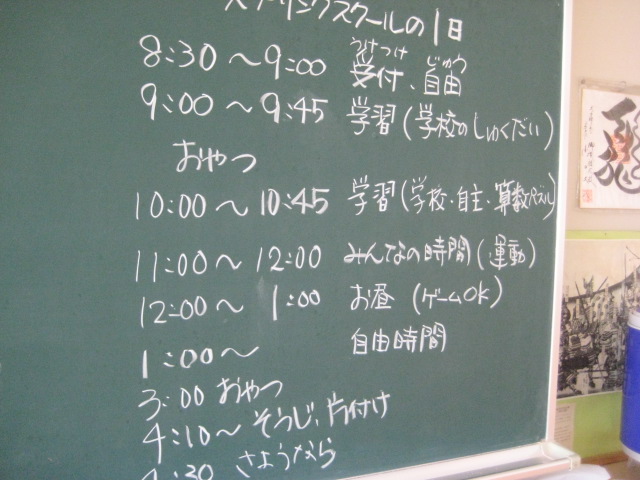 スプリングスクールの1日
うけつけ じゆう
8:30～9:00 受付、自由
9:00～9:45 学習(学校のしゅくだい)
おやつ
10:00～10:45 学習(学校・自主・算数パズル)
11:00～12:00 みんなの時間(運動)
12:00～1:00 お昼(ゲームOK)
1:00～ 自由時間
3:00 おやつ
4:10～そうじ、片付け
4:30 さようなら